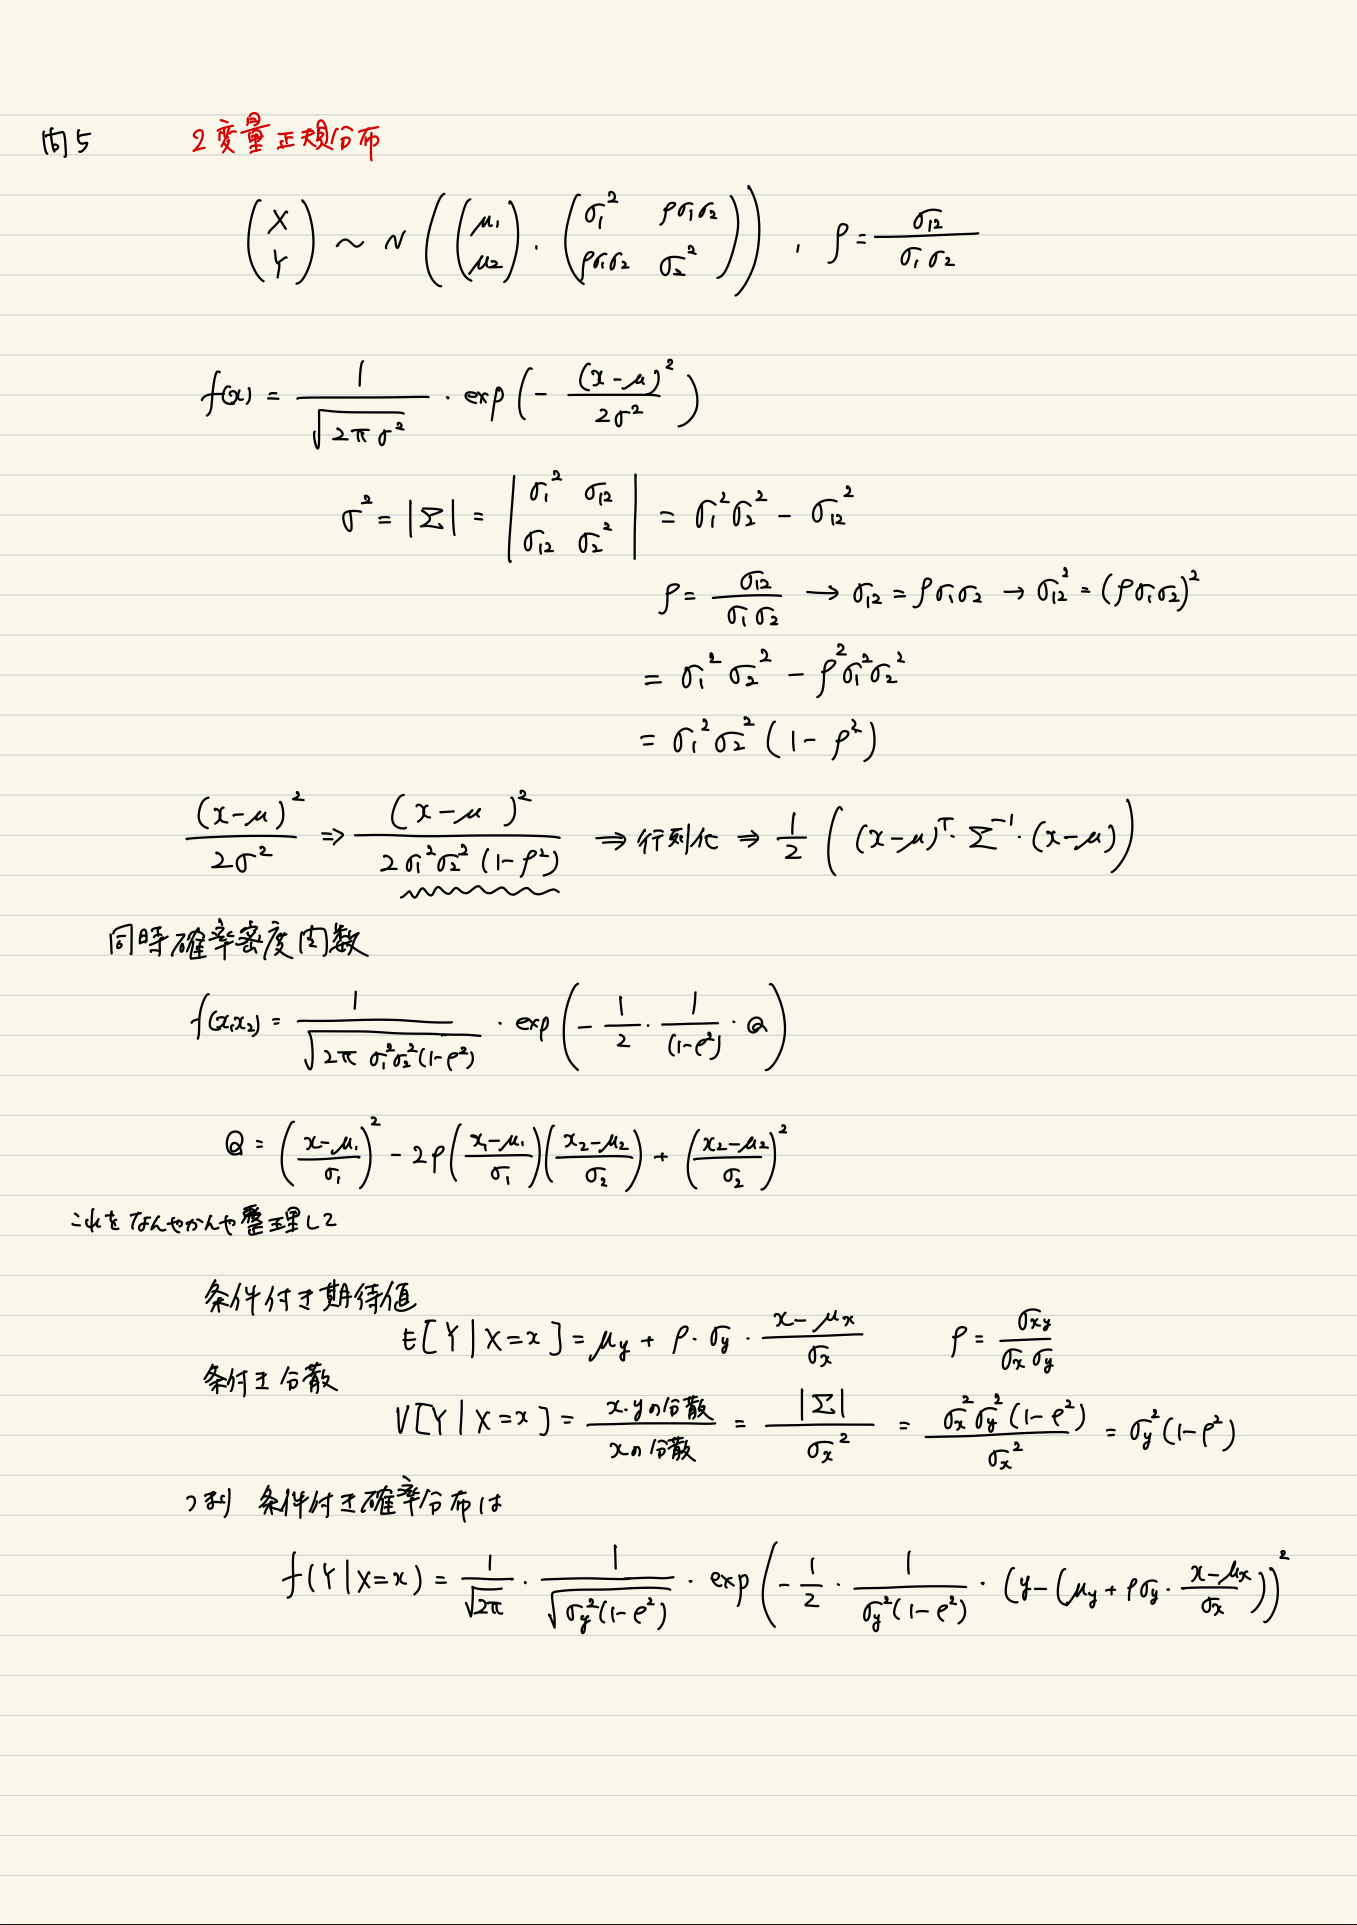 問5 2変量正規分布
(X Y) ~ N((μ1 μ2), (σ1² ρσ1σ2 ρσ1σ2 σ2²)), ρ = σ12 / σ1σ2
f(x) = 1/√(2πσ²) · exp(- (x-μ)² / 2σ²)
σ² = |Σ| = |σ1² σ12 σ12 σ2²| = σ1²σ2² - σ12²
ρ = σ12 / σ1σ2 → σ12 = ρσ1σ2 → σ12² = (ρσ1σ2)²
= σ1²σ2² - ρ²σ1²σ2²
= σ1²σ2²(1-ρ²)
(x-μ)² / 2σ² ⇒ (x-μ)² / 2σ1²σ2²(1-ρ²) ⇒ 行列化 ⇒ 1/2 ((x-μ)ᵀ· Σ⁻¹ · (x-μ))
同時確率密度関数
f(x1,x2) = 1/√(2π σ1²σ2²(1-ρ²)) · exp(- 1/2 · 1/(1-ρ²) · Q)
Q = ((x-μ1)/σ1)² - 2ρ((x1-μ1)/σ1)((x2-μ2)/σ2) + ((x2-μ2)/σ2)²
これをなんやかんや整理して
条件付き期待値
E[Y|X=x] = μy + ρ·σy · (x-μx)/σx ρ = σxy / σxσy
条付き分散
V[Y|X=x] = x·yの分散 / xの分散 = |Σ| / σx² = σx²σy²(1-ρ²) / σx² = σy²(1-ρ²)
つまり 条件付き確率分布は
f(Y|X=x) = 1/√2π · 1/√(σy²(1-ρ²)) · exp(- 1/2 · 1/σy²(1-ρ²) · (y-(μy + ρσy · (x-μx)/σx)))²